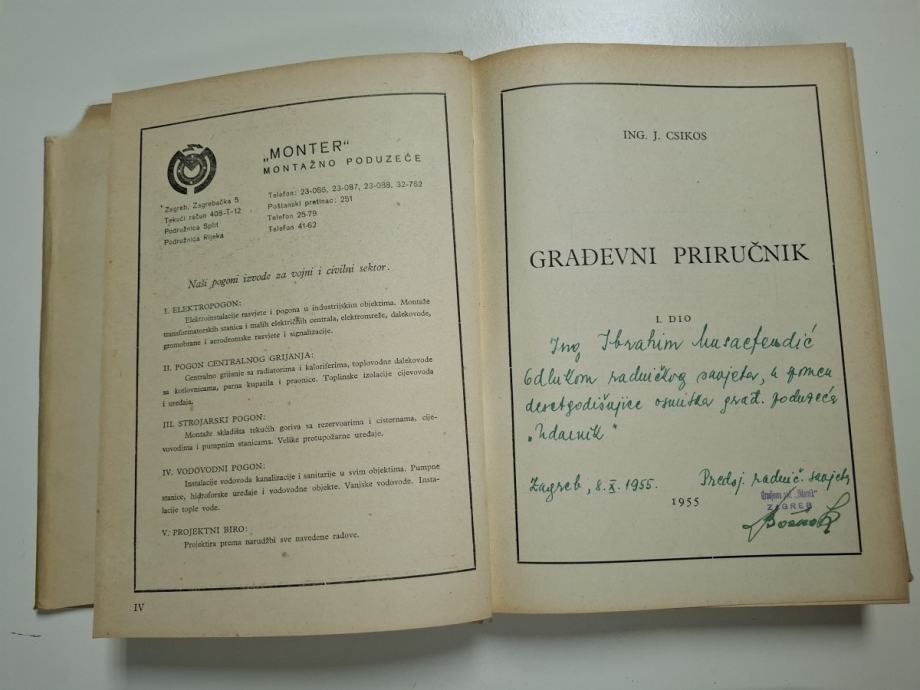 „MONTER"
MONTAŽNO PODUZEĆE
Zagreb, Zagrebačka 5
Tekući račun 408-T-12
Podružnica Split
Podružnica Rijeka
Telefon: 23-086, 23-087, 23-088, 32-762
Poštanski pretinac: 251
Telefon 25-79
Telefon 41-62
Naši pogoni izvode za vojni i civilni sektor.
I. ELEKTROPOGON:
Elektroinstalacije rasvjete i pogona u industrijskim objektima. Montaže
transformatorskih stanica i malih električnih centrala, elektromreže, dalekovode,
gromobrane i aerodromske rasvjete i signalizacije.
II. POGON CENTRALNOG GRIJANJA:
Centralno grijanje sa radiatorima i kaloriferima, toplovodne dalekovode
sa kotlovnicama, parna kupatila i praonice. Toplinske izolacije cijevovoda
i uređaja.
III. STROJARSKI POGON:
Montaže skladišta tekućih goriva sa rezervoarima i cisternama, cije-
vovodima i pumpnim stanicama. Velike protupožarne uređaje.
IV. VODOVODNI POGON:
Instalacije vodovoda kanalizacije i sanitarije u svim objektima. Pumpne
stanice, hidroforske uređaje i vodovodne objekte. Vanjske vodovode. Insta-
lacije tople vode.
V. PROJEKTNI BIRO:
Projektira prema narudžbi sve navedene radove.
IV
ING. J. CSIKOS
GRAĐEVNI PRIRUČNIK
I. DIO
Ing Ibrahim Musaefendić
Odlukom radničkog savjeta, u
desetgodišnjice osnutka građ. poduzeća
„Udarnik"
Zagreb, 8. X. 1955. Predsj. radnič. savjeta
1955
"Udarnik"
ZAGREB